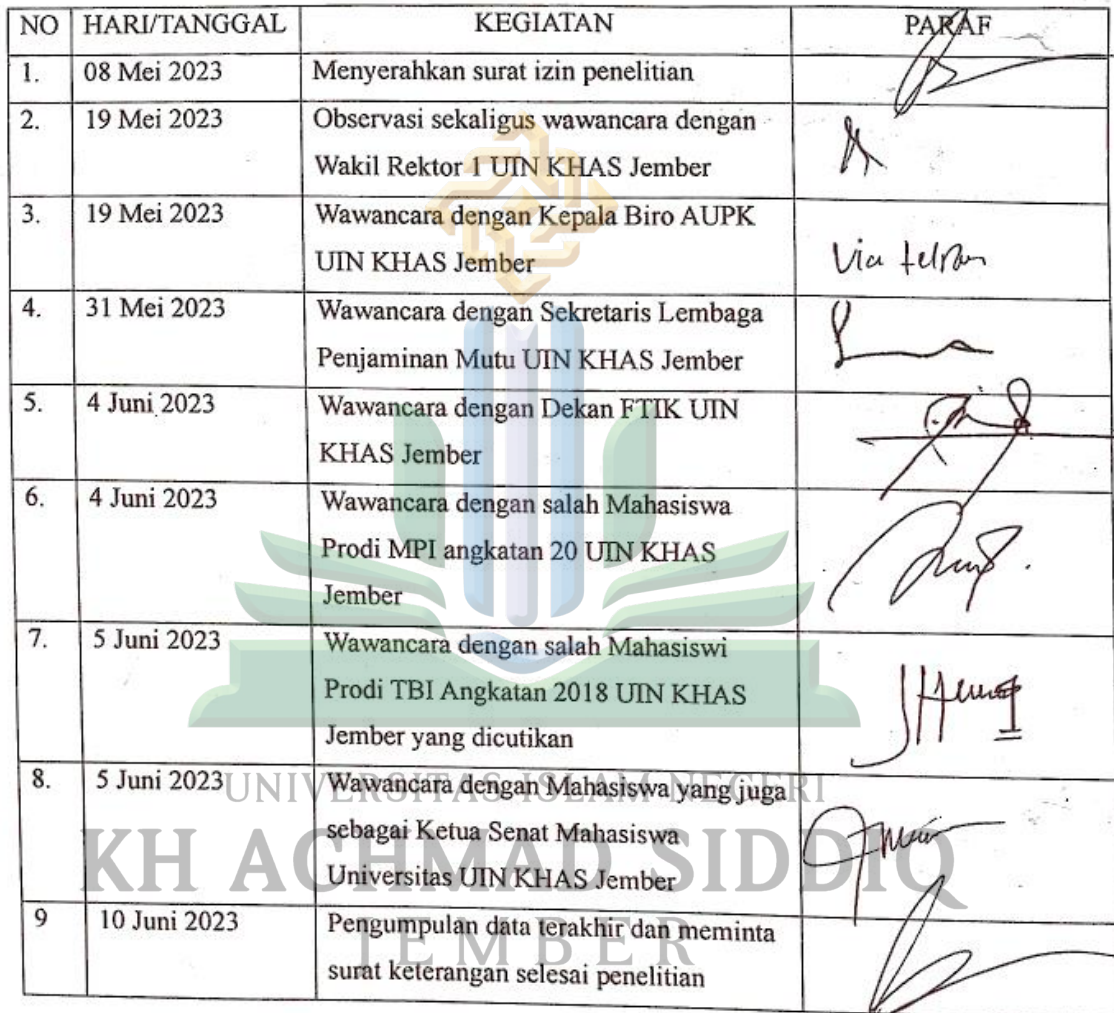 NO HARI/TANGGAL KEGIATAN PARAF
1. 08 Mei 2023 Menyerahkan surat izin penelitian
2. 19 Mei 2023 Observasi sekaligus wawancara dengan
Wakil Rektor 1 UIN KHAS Jember
3. 19 Mei 2023 Wawancara dengan Kepala Biro AUPK
UIN KHAS Jember Via telpon
4. 31 Mei 2023 Wawancara dengan Sekretaris Lembaga
Penjaminan Mutu UIN KHAS Jember
5. 4 Juni 2023 Wawancara dengan Dekan FTIK UIN
KHAS Jember
6. 4 Juni 2023 Wawancara dengan salah Mahasiswa
Prodi MPI angkatan 20 UIN KHAS
Jember
7. 5 Juni 2023 Wawancara dengan salah Mahasiswi
Prodi TBI Angkatan 2018 UIN KHAS
Jember yang dicutikan
8. 5 Juni 2023 Wawancara dengan Mahasiswa yang juga
sebagai Ketua Senat Mahasiswa
Universitas UIN KHAS Jember
9 10 Juni 2023 Pengumpulan data terakhir dan meminta
surat keterangan selesai penelitian
UNIVERSITAS ISLAM NEGERI
KH ACHMAD SIDDIQ
JEMBER